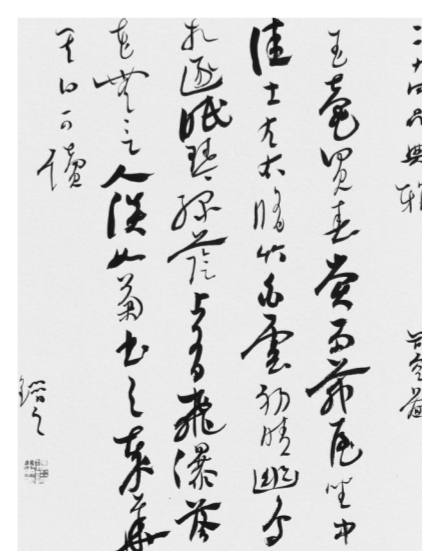 二十四品典雅 司空圖
玉壺買春賞雨茅屋坐中
佳士左右脩竹白雲初晴幽鳥
相逐眠琴綠陰上有飛瀑落
花無言人淡如菊書之歲華
其曰可讀